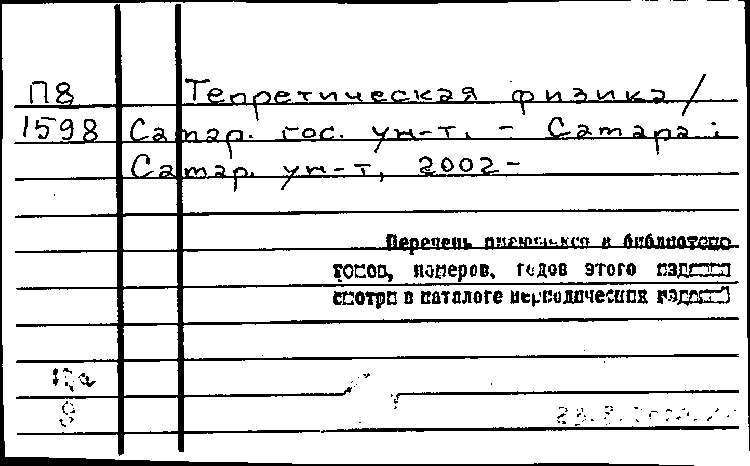 П8 Теоретическая физика /
1598 Самар. гос. ун-т. - Самара :
Самар. ун-т, 2002-
Перечень имеющихся в библиотеке
томов, номеров, годов этого издания
смотри в каталоге периодических изданий